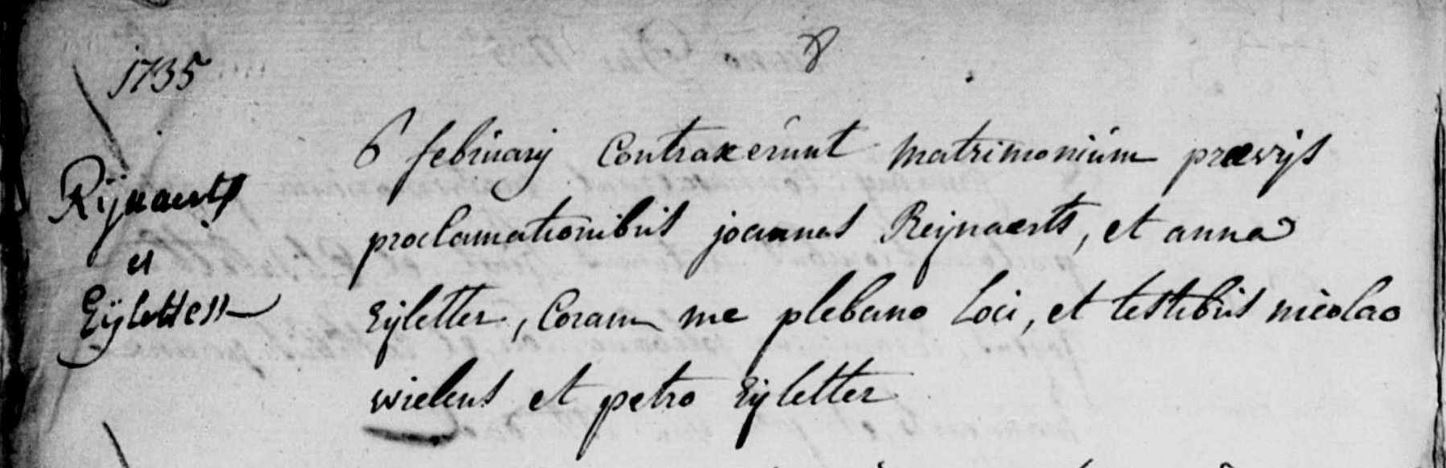 8
1735
Rijnaerts
et
Eÿletter
6 februarij contraxerunt matrimonium prævijs
proclamationibus joannes Reijnaerts, et anna
Eijletter, Coram me plebano loci, et testibus nicolao
wielens et petro Eijletter